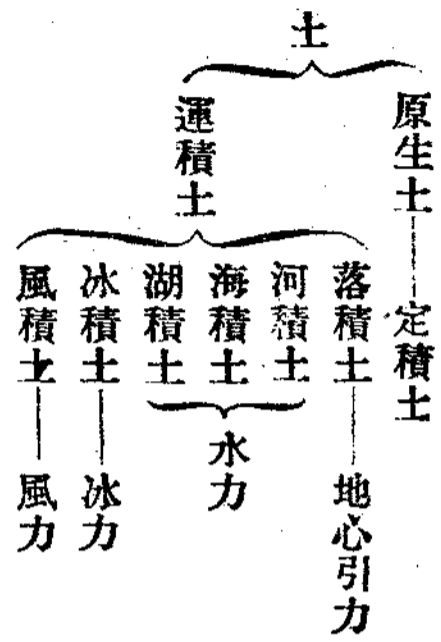 土
原生土——定積土
運積土
落積土——地心引力
河積土
海積土
湖積土
水力
冰積土——冰力
風積土——風力